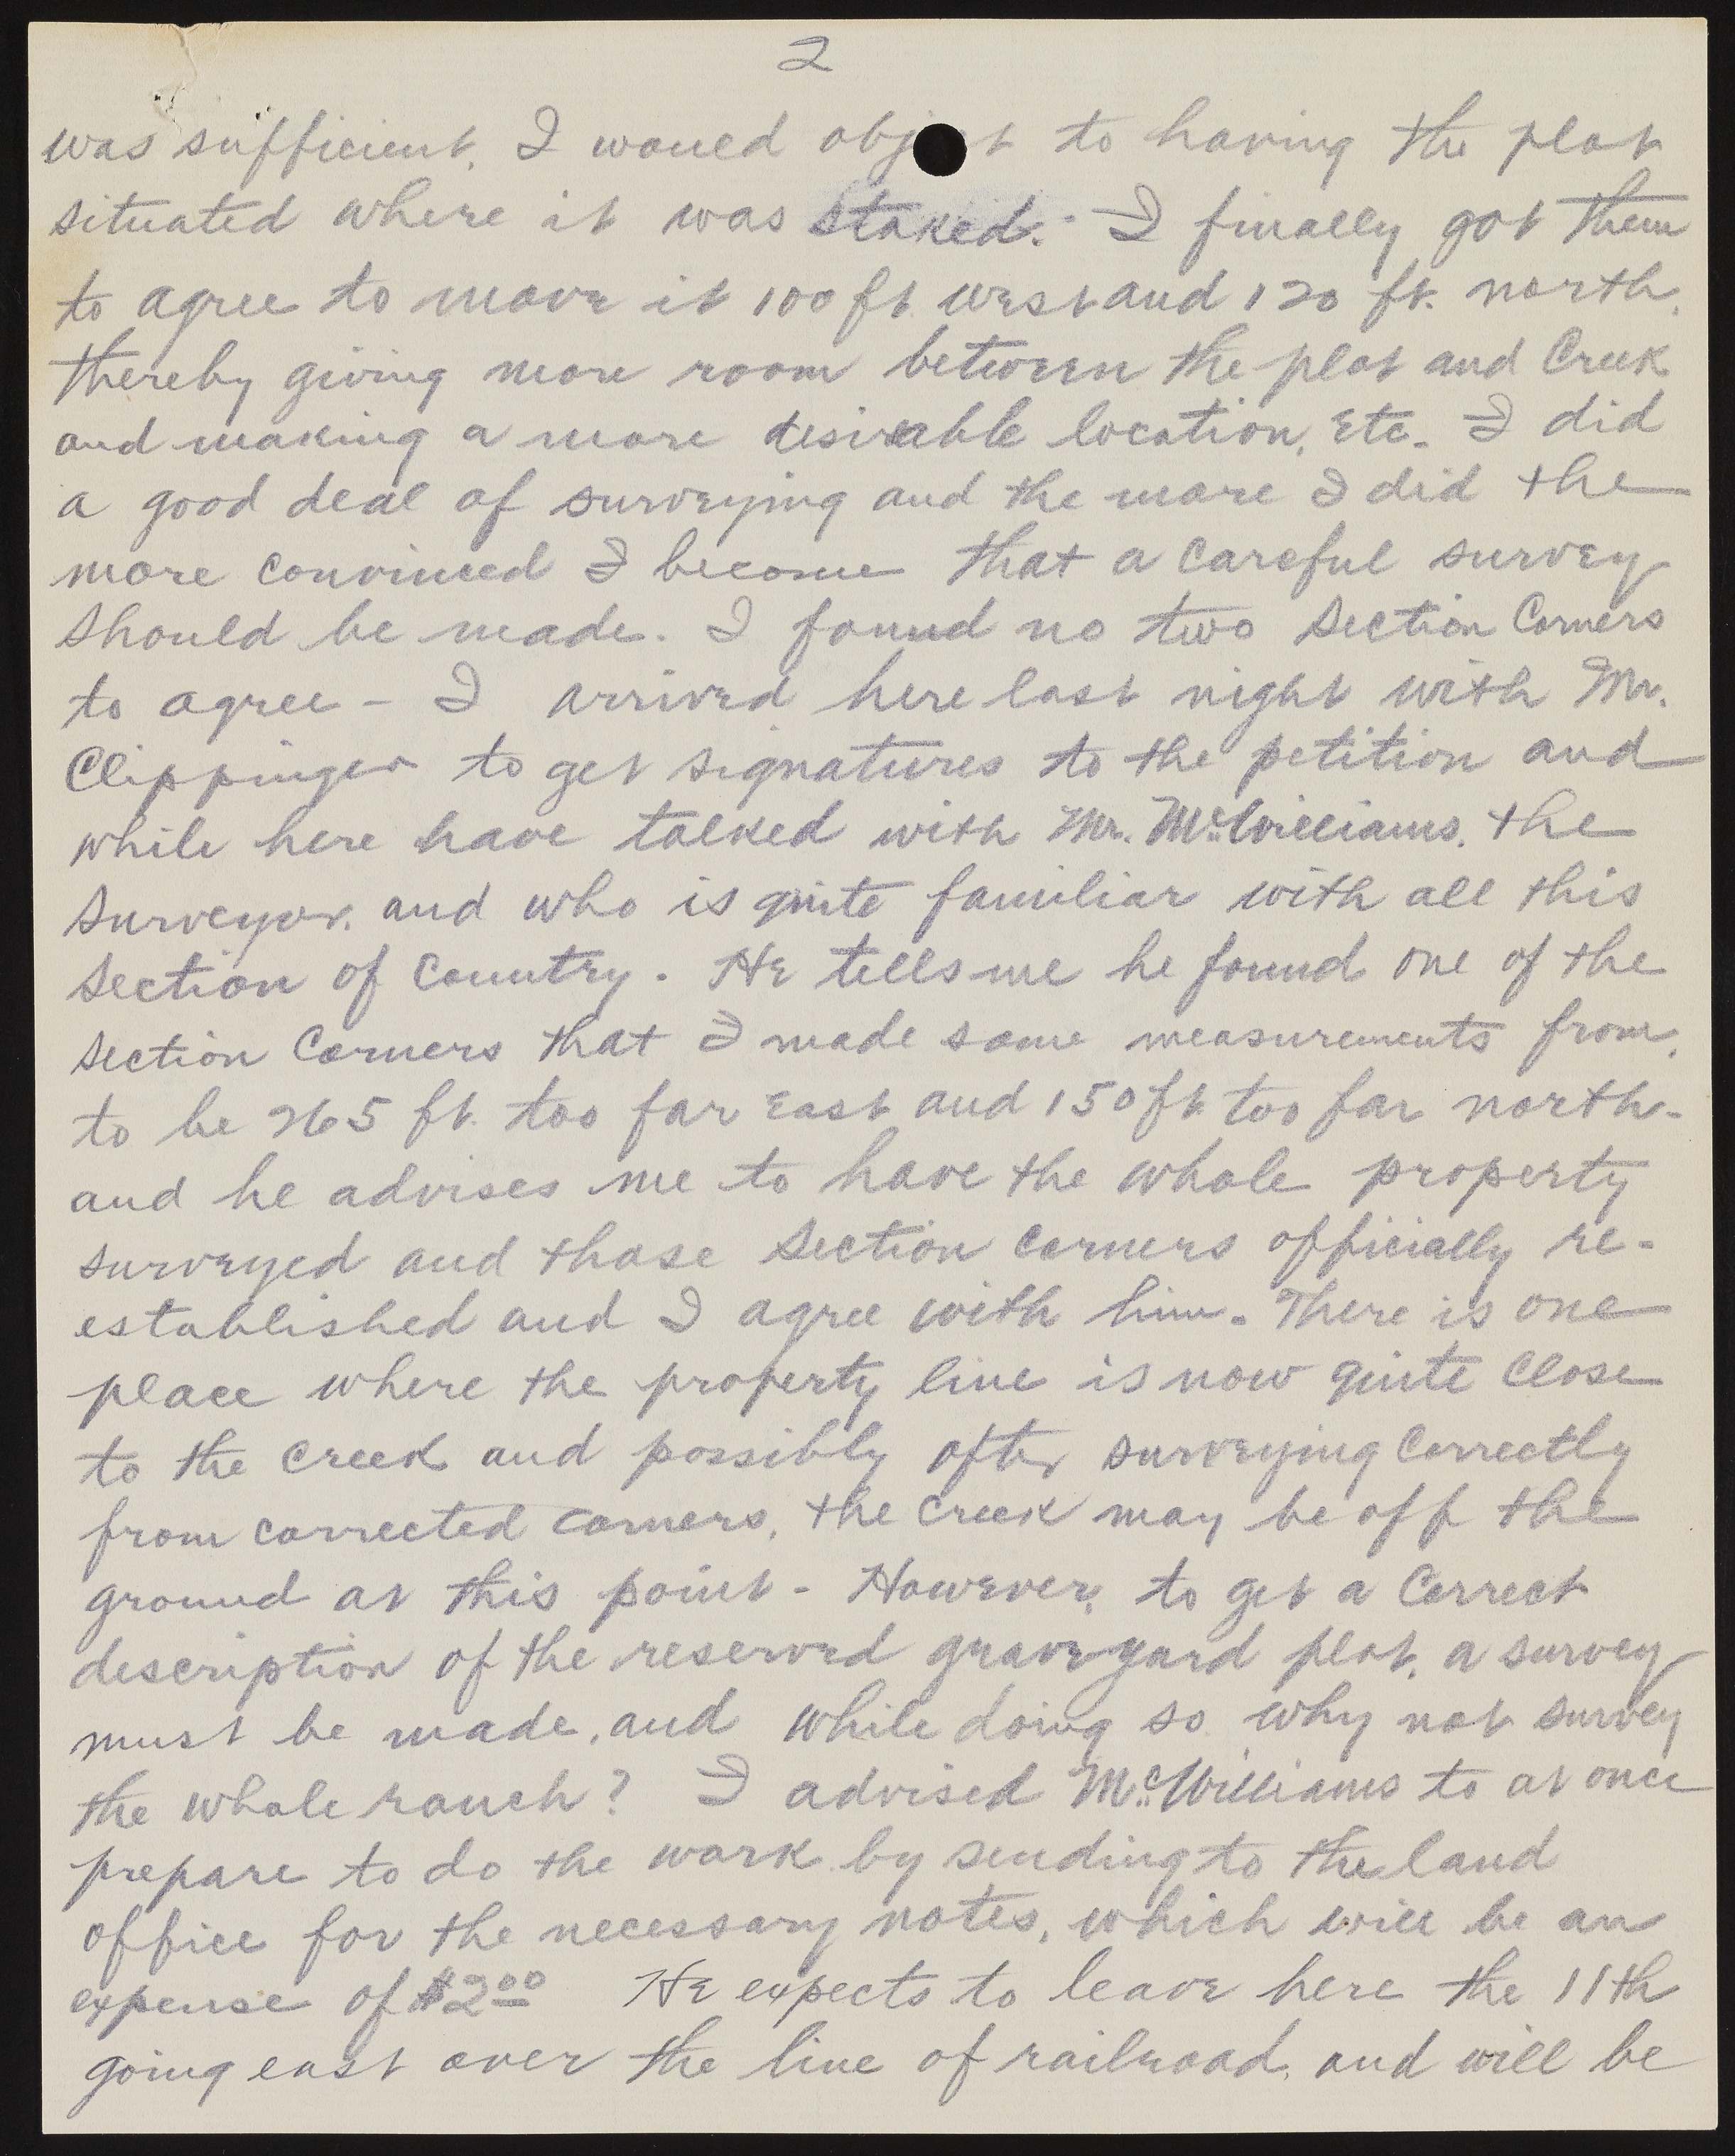 2
was sufficient, I would obj t to having the plot
situated where it was staked. - I finally got them
to agree to move it 100 ft. west and 120 ft. north,
thereby giving more room between the plot and Creek
and making a more desirable location, etc. I did
a good deal of surveying and the more I did the
more convinced I become that a careful survey
should be made. I found no two section Corners
to agree - I arrived here last night with Mr.
Clippinger to get signatures to the petition and
while here have talked with Mr. McWilliams, the
surveyor, and who is quite familiar with all this
section of Country. He tells me he found one of the
section Corners that I made some measurements from,
to be 265 ft. too far east and 150 ft too far north-
and he advises me to have the whole property
surveyed and those section corners officially re-
established and I agree with him. There is one
place where the property line is now quite close
to the creek and possibly after surveying correctly
from corrected corners, the creek may be off the
ground at this point - However, to get a correct
description of the reserved graveyard plot, a survey
must be made, and while doing so why not survey
the whole ranch? I advised McWilliams to at once
prepare to do the work by sending to the land
office for the necessary notes, which will be an
expense of $2.00 He expects to leave here the 11th
going east over the line of railroad, and will be